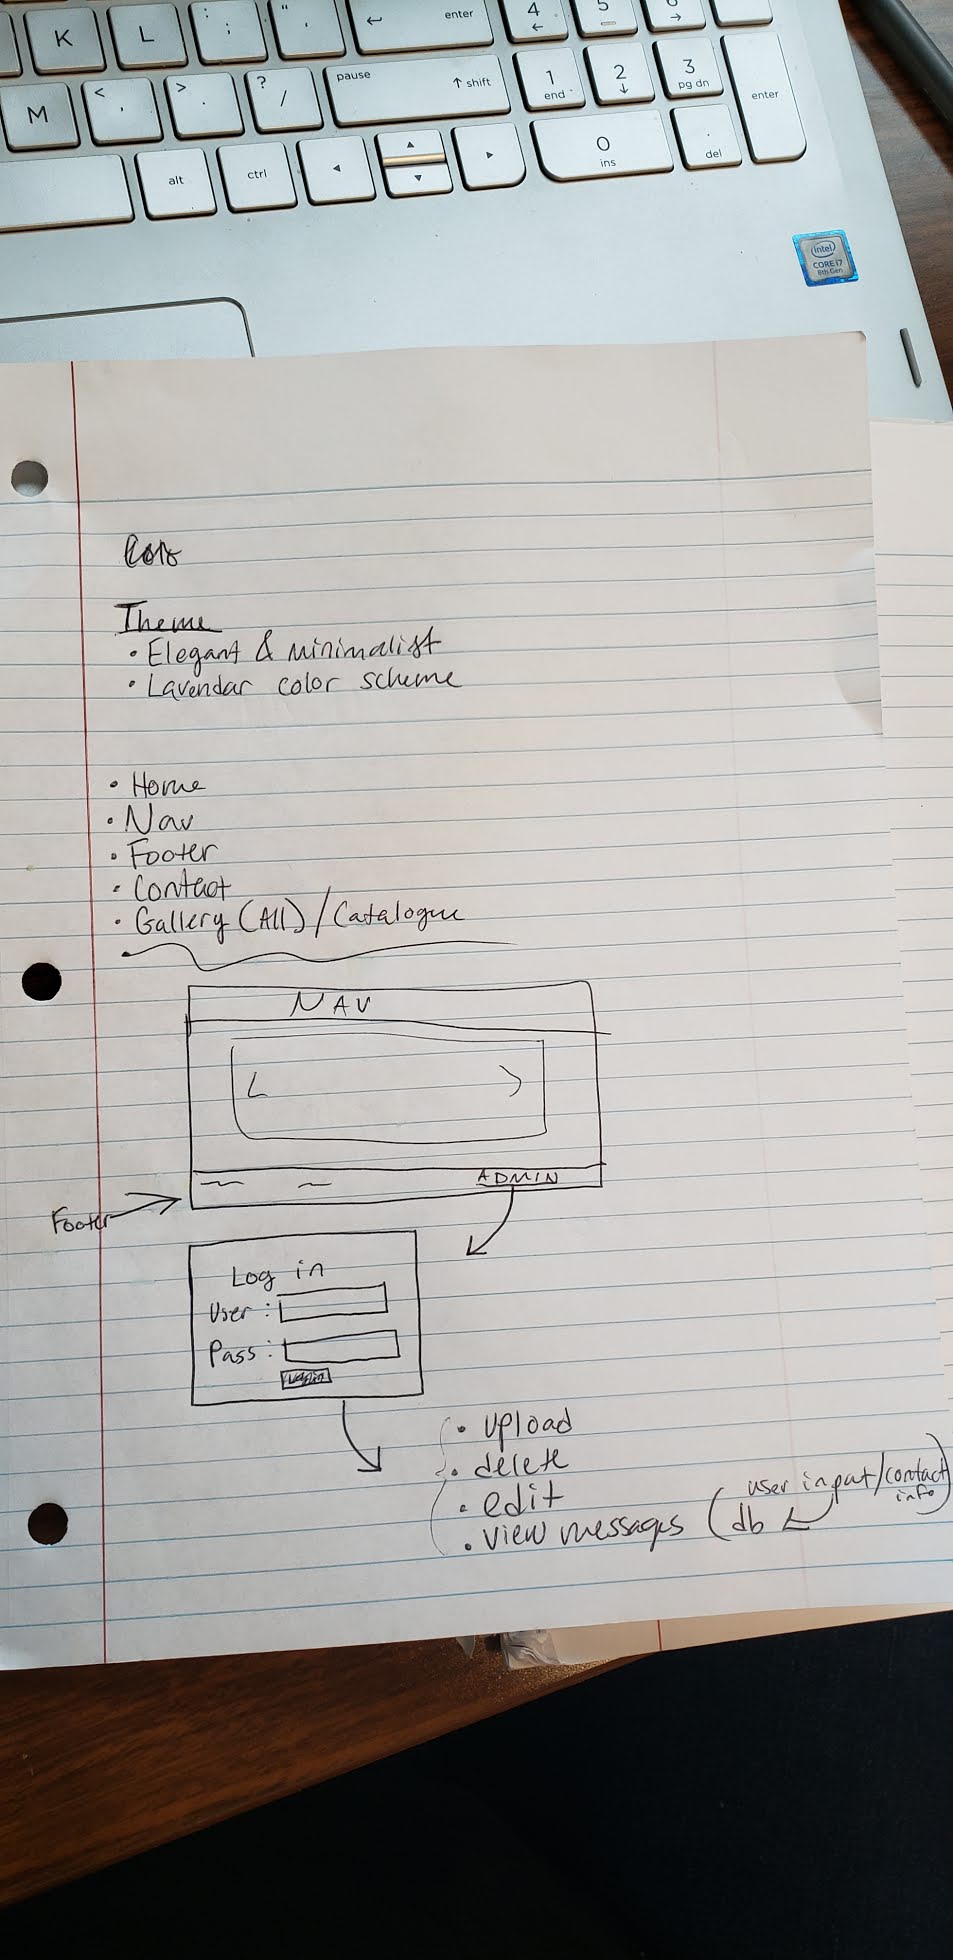 K L : ; " ' ↵ enter 4 ← 5 6 →
M < , > . ? / pause ↑ shift 1 end 2 ↓ 3 pg dn enter
alt ctrl ◄ ▲ ▼ ► 0 ins . del
intel
CORE i7
8th Gen
Theme
• Elegant & minimalist
• Lavendar color scheme
• Home
• Nav
• Footer
• Contact
• Gallery (All) / Catalogue
NAV
< >
ADMIN
Footer
Log in
User :
Pass :
• upload
• delete
• edit
• view messages (db user input/contact info)